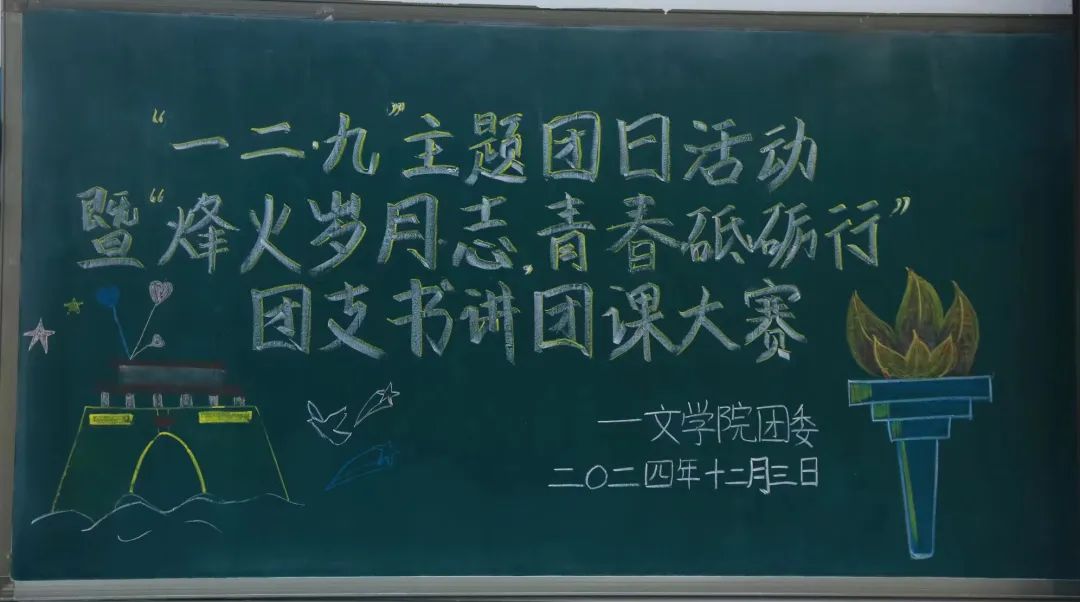 “一二·九”主题团日活动
暨“烽火岁月志，青春砥砺行”
团支书讲团课大赛
一文学院团委
二〇二四年十二月三日